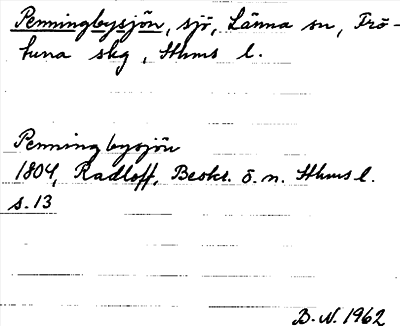 Penningbysjön, sjö, Länna sn, Frö-
tuna skg, Sthms l.
Penningbysjön
1804, Radloff, Beskr. ö. n. Sthms l.
s. 13
B. W. 1962